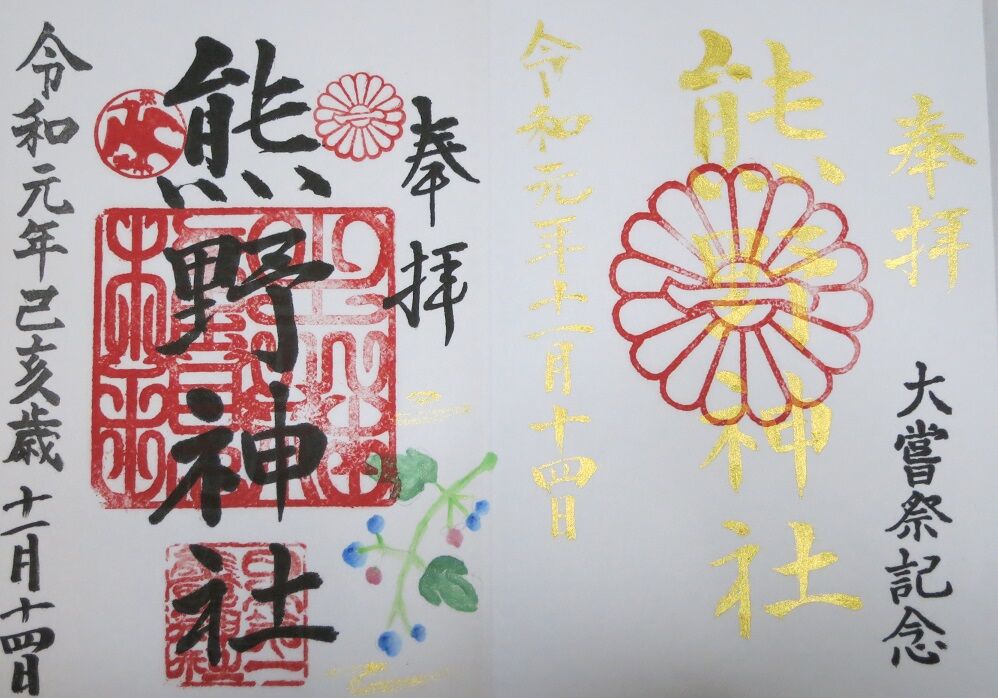 奉拝
大嘗祭記念
熊野神社
令和元年十一月十四日
奉拝
熊野神社
令和元年己亥歳 十一月十四日